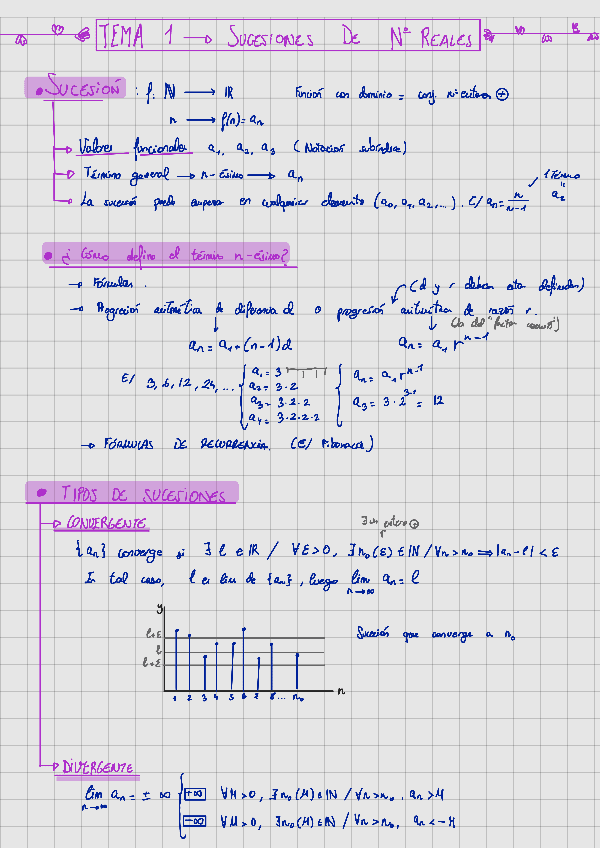 TEMA 1 → SUCESIONES DE Nº REALES
• SUCESIÓN : f: ℕ → ℝ Función con dominio = conj. nº enteros ⊕
n → f(n) = aₙ
→ Valores funcionales a₁, a₂, a₃ (Notación subíndice)
→ Término general → n-ésimo → aₙ
1 término
→ La sucesión puede empezar en cualquier elemento (a₀, a₁, a₂, ...). E/ aₙ = n/(n-1) ✓ a₂
• ¿Cómo defino el término n-ésimo?
→ Fórmulas.
(d y r deben estar definidos)
→ Progresión aritmética de diferencia d o progresión aritmética de razón r.
(la del "factor común")
aₙ = a₁ + (n-1)d aₙ = a₁ rⁿ⁻¹
E/ 3, 6, 12, 24, ...
a₁ = 3
a₂ = 3·2
a₃ = 3·2·2
a₄ = 3·2·2·2
aₙ = a₁ rⁿ⁻¹
a₃ = 3·2³⁻¹ = 12
→ FÓRMULAS DE RECURRENCIA. (E/ Fibonacci)
• TIPOS DE SUCESIONES
→ CONVERGENTE
∃ un entero ⊕
{aₙ} converge si ∃ l ∈ ℝ / ∀ε > 0, ∃ n₀(ε) ∈ ℕ / ∀n > n₀ ⟹ |aₙ - l| < ε
En tal caso, l es lim de {aₙ}, luego lim n→∞ aₙ = l
y
l+ε
l
l+ε
1 2 3 4 5 6 7 8 ... n₀
n
Sucesión que converge a n₀
→ DIVERGENTE
lim n→∞ aₙ = ± ∞
+∞ ∀M > 0, ∃ n₀(M) ∈ ℕ / ∀n > n₀, aₙ > M
-∞ ∀M > 0, ∃ n₀(M) ∈ ℕ / ∀n > n₀, aₙ < -M